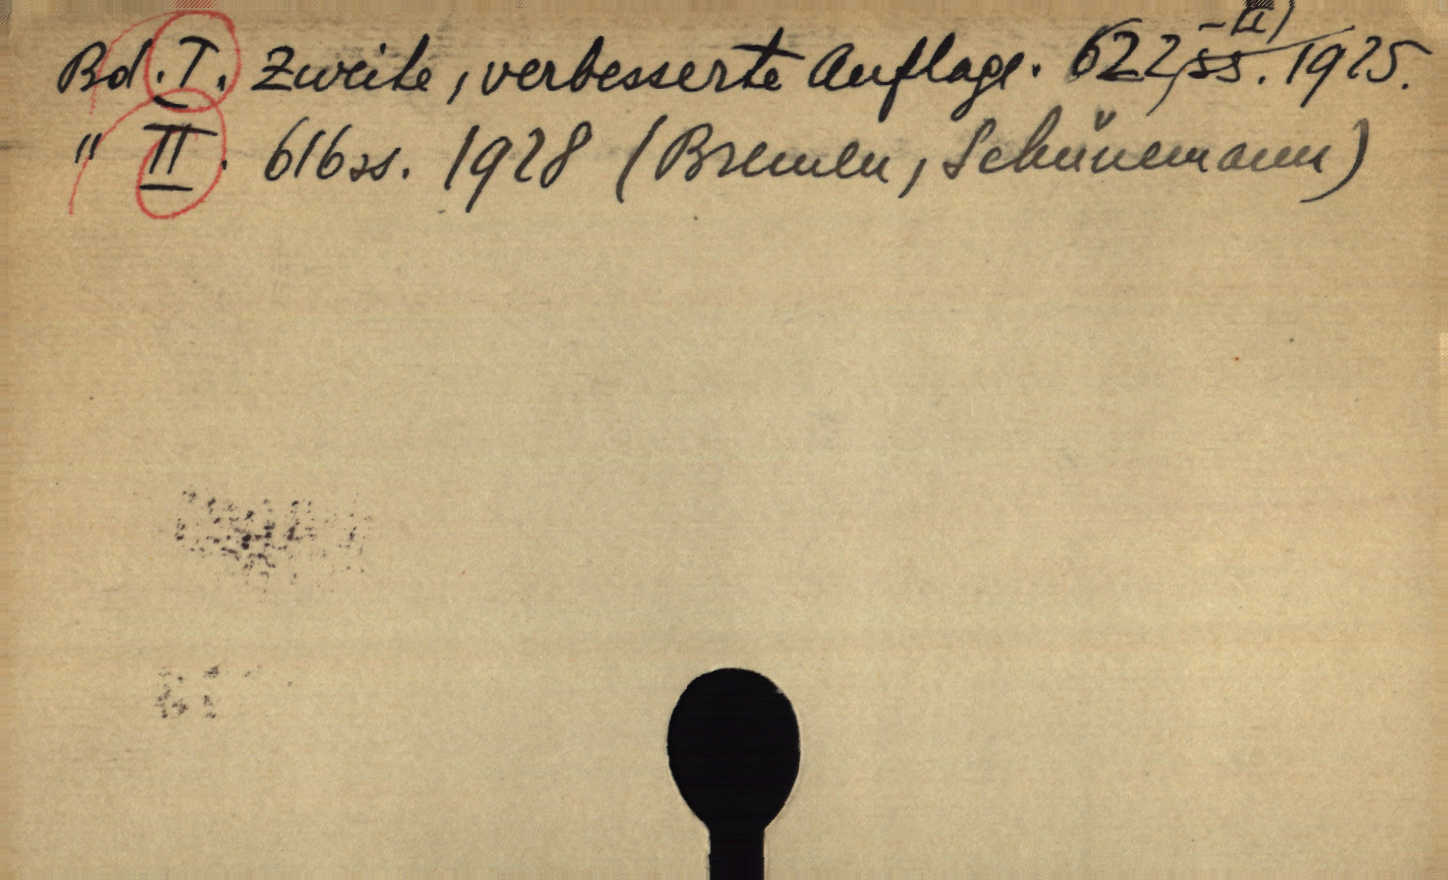 Bd. I. Zweite, verbesserte Auflage. 622, ss. 1925.
" II. 616 ss. 1928 (Bremen, Schünemann)